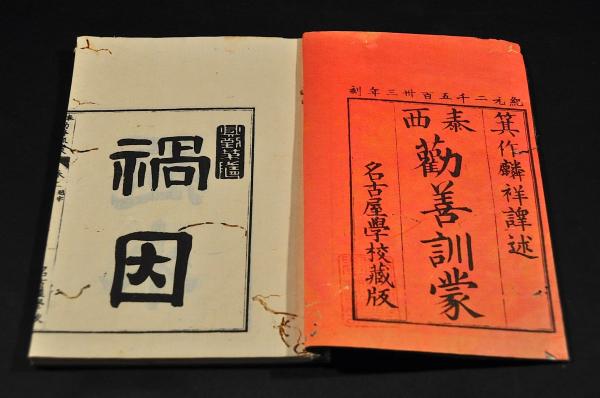 紀元二千五百卅三年刻
箕作麟祥譯述
泰西
勸善訓蒙
名古屋學校藏版
禍因